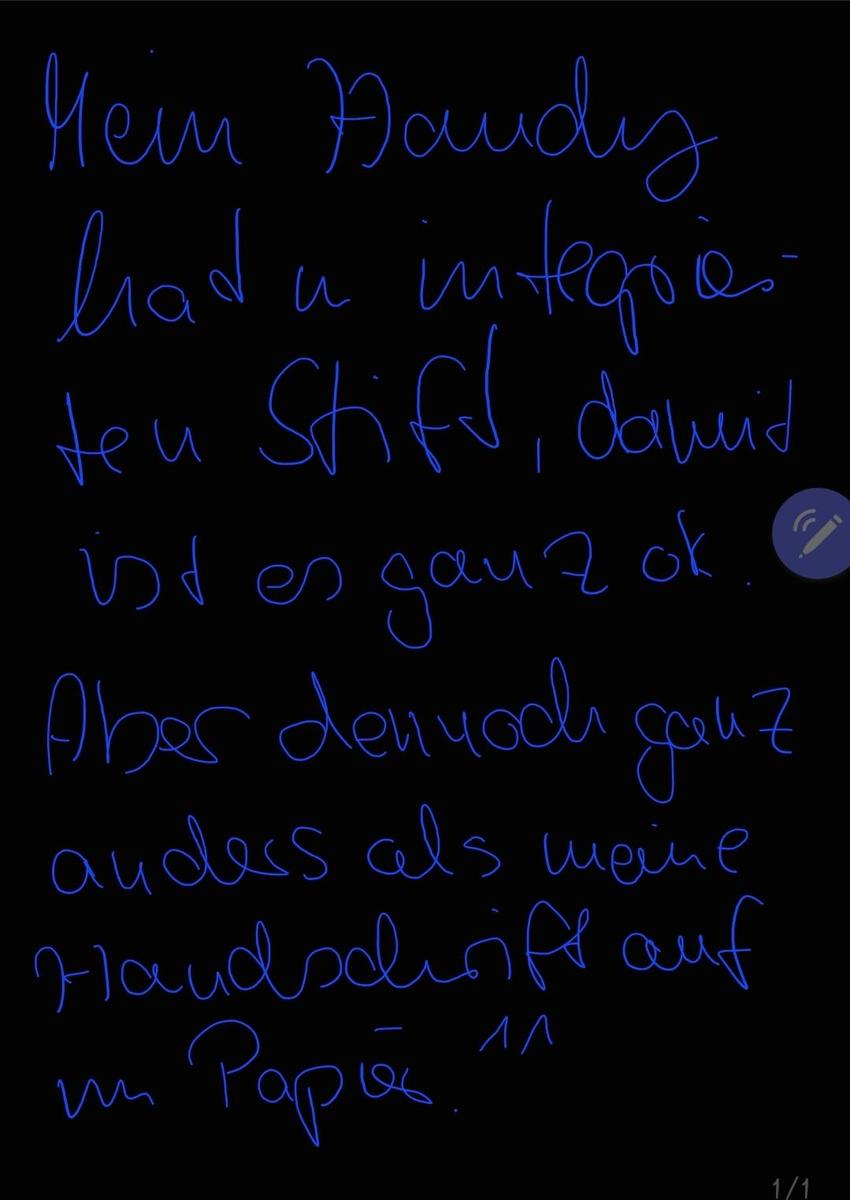 Mein Handy
hat n integrier-
ten Stift, damit
ist es ganz ok.
Aber dennoch ganz
anders als meine
Handschrift auf
Papier. ^^
1/1